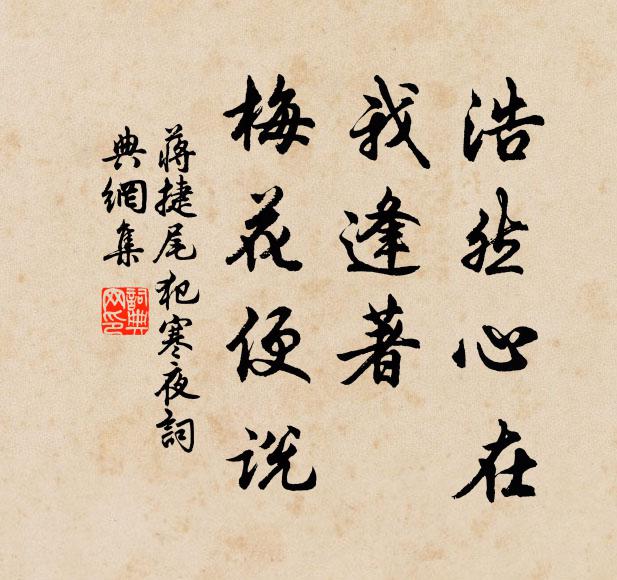 浩然心在
我逢著
梅花便説
蔣捷尾犯寒夜詞
典網集
詞典網印